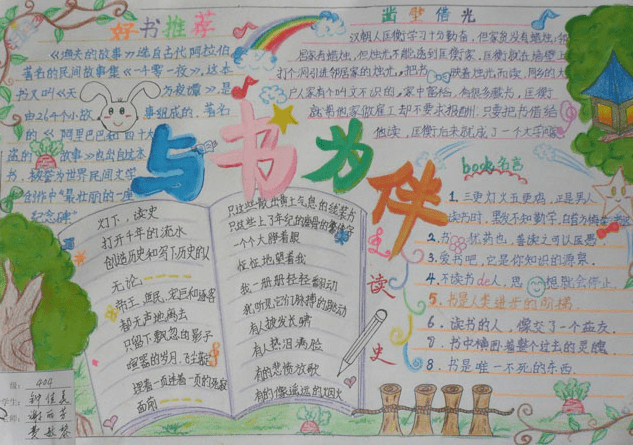 好书推荐
《渔夫的故事》选自古代阿拉伯
著名的民间故事集《一千零一夜》,这本
书又叫《天方夜谭》是
由264个小故事组成的,著名
的《阿里巴巴和四十大
盗的故事》也出自这本
书,被誉为世界民间文学
创作中"最壮丽的一座
纪念碑"
凿壁借光
汉朝人匡衡学习十分勤奋,但家贫没有蜡烛,邻
居家有蜡烛,但烛光不能透到匡衡家,匡衡就在墙壁上
打个洞引进邻居家的烛光,把书映着烛光而读。同乡的大
户人家有个叫文不识的,家中富裕,有很多藏书,匡衡
就帮他家做雇工却不要求报酬,只要把书借给
他读,匡衡后来就成了一个大学
与书为伴
灯下,读史
打开千年的流水
创造历史和写下历史的人
无论
帝王、庶民、宠臣和逐客
都无声地离去
只留下飘忽的影子
喧嚣的岁月,飞尘
埋着一页连着一页的
面前
只这些散出黄土气息的线装书
一个大睁着眼
怔怔地望着我
我一册册轻轻翻动
我听见它们脉搏的跳动
有人披发长啸
有人热泪满脸
有的悲愤放歌
有的像遥远的烟火
读
史
book名言
1.三更灯火五更鸡,正是男儿
读书时,黑发不知勤学
2.书犹药也,善读之可以医愚
3.爱书吧,它是你知识的源泉
4.不读书de人,思想就会停止.
5.书是人类进步的阶梯.
6.读书的人,像交了一个益友.
7.书中横卧着整个过去的灵魂
8.书是唯一不死的东西.
级:404
学生:钟佳
师:谢